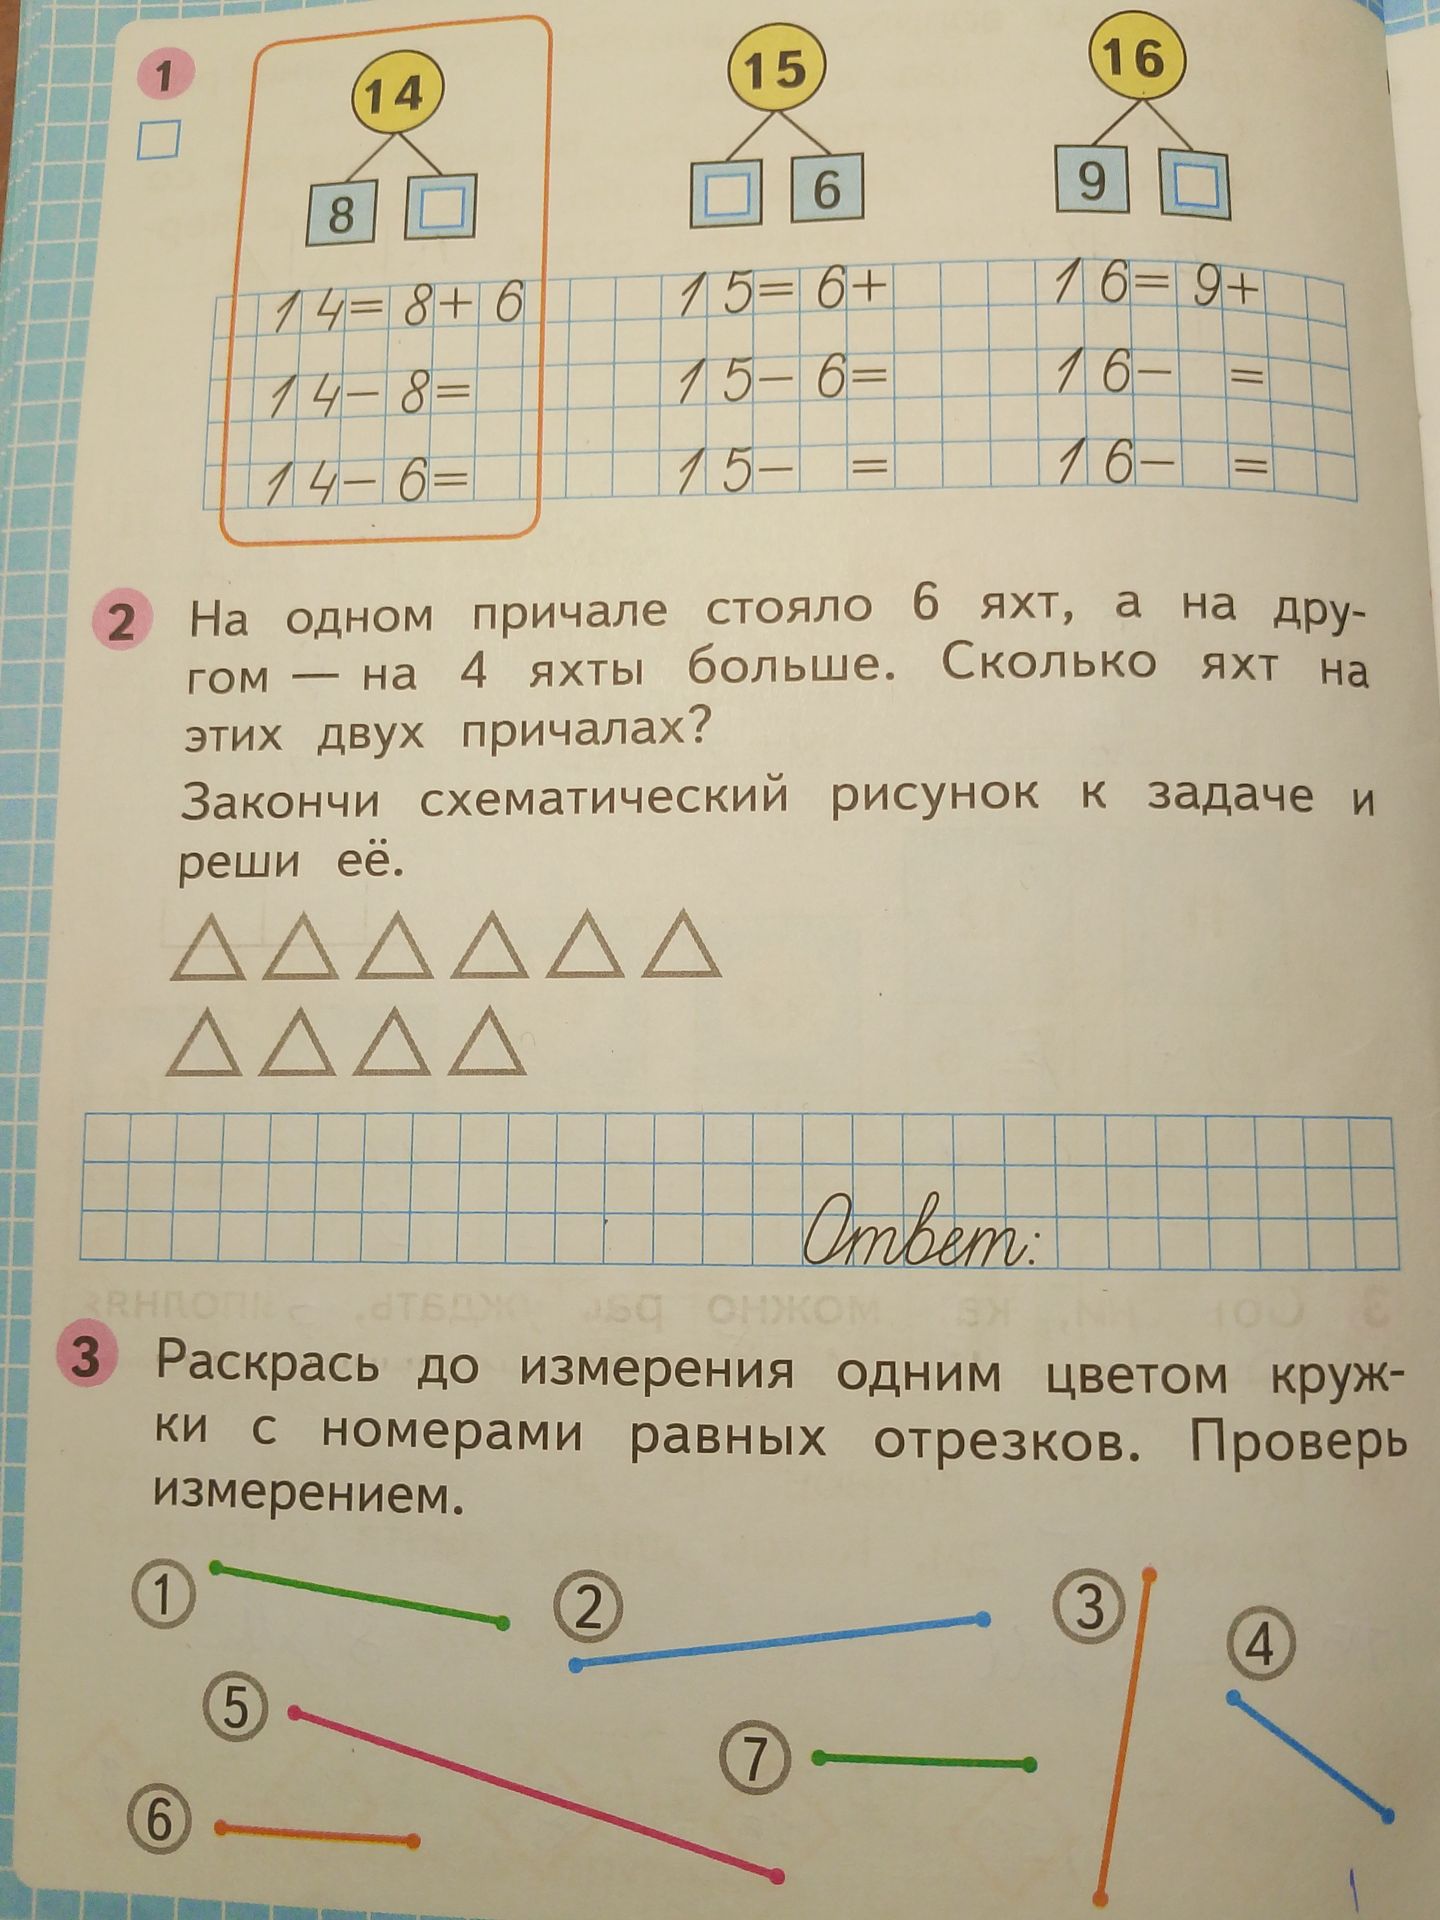 1
14 15 16
8 6 9
14=8+6 15=6+ 16=9+
14-8= 15-6= 16- =
14-6= 15- = 16- =
2 На одном причале стояло 6 яхт, а на дру-
гом — на 4 яхты больше. Сколько яхт на
этих двух причалах?
Закончи схематический рисунок к задаче и
реши её.
Ответ:
3 Раскрась до измерения одним цветом круж-
ки с номерами равных отрезков. Проверь
измерением.
1 2 3 4
5 7
6